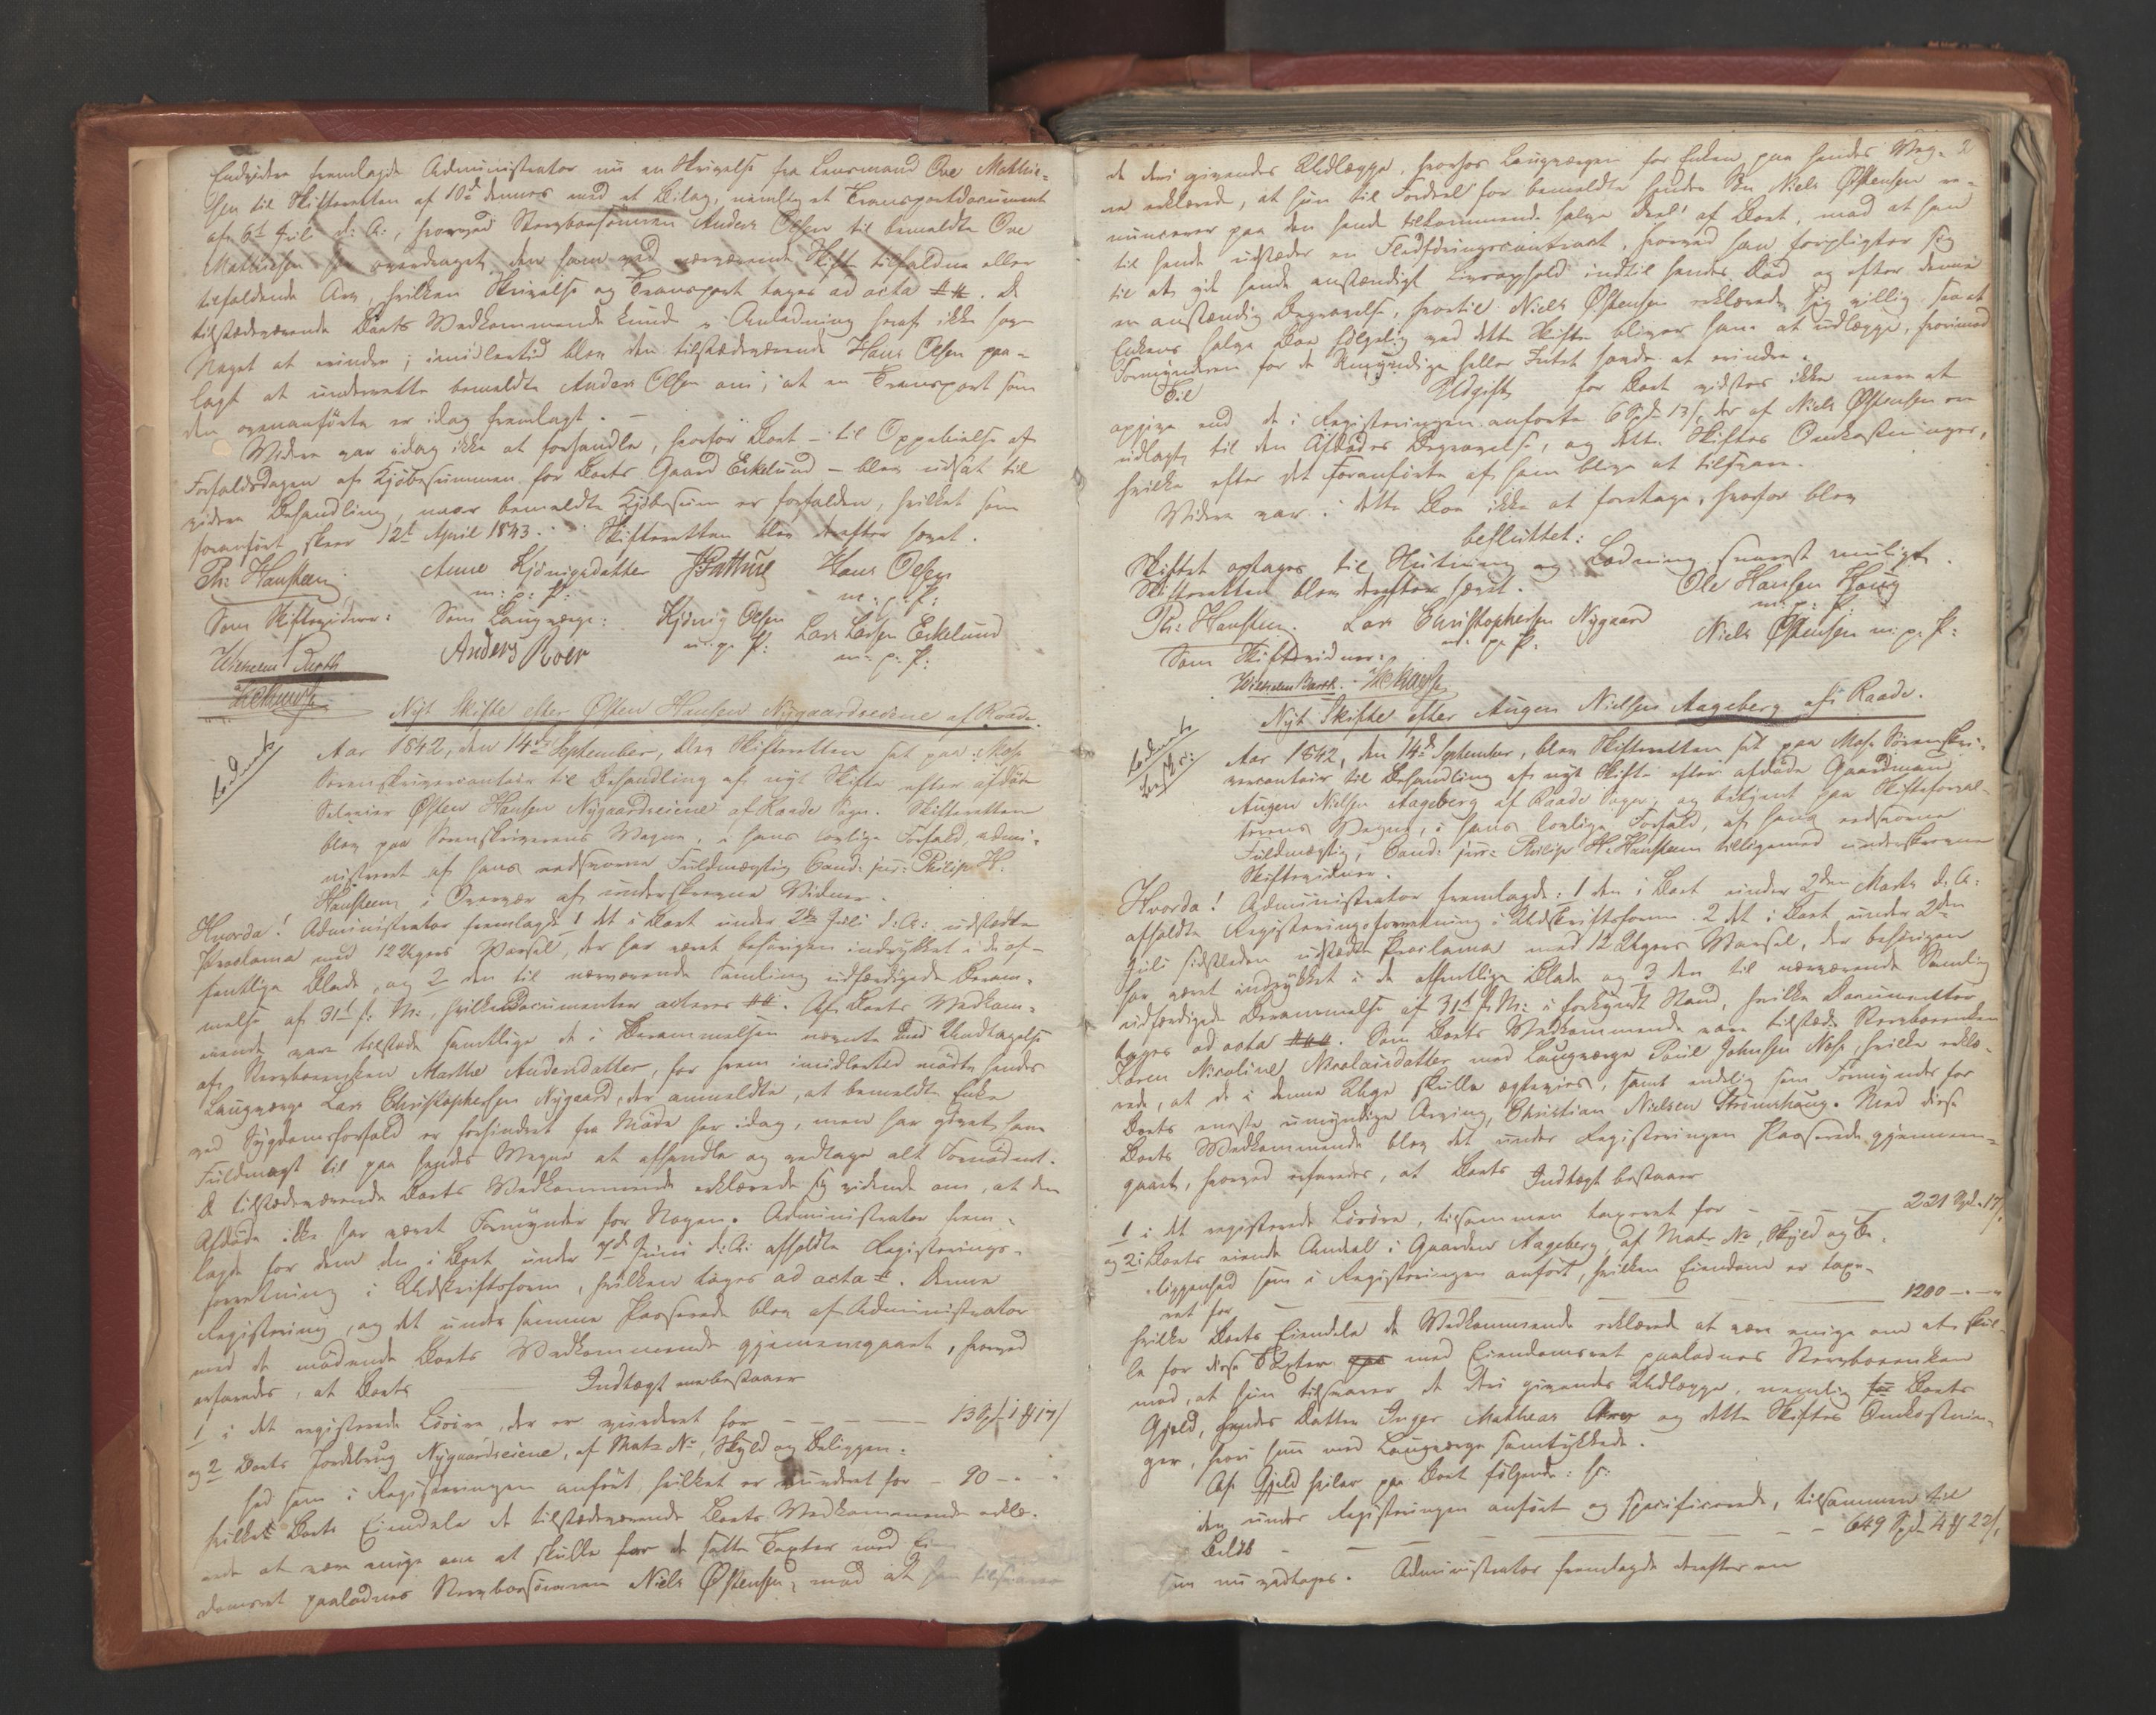 Endvidere fremlagde Administrator nu en Skrivelse fra Lensmand Ove Mathie-
sen til Skifteretten af 10de dennes med et Bilag, nemlig et Transportdocument
af 6te Juli d: A:, hvorved Stervboesønnen Anders Olsen til bemeldte Ove
Mathiesen har overdraget den ham ved nærværende Skifte tilfaldne eller
tilfaldende Arv, hvilken Skrivelse og Transport tages ad acta. De
tilstedeværende Boets Vedkommende kunde i Anledning heraf ikke have
Noget at erindre; imidlertid blev den tilstedeværende Hans Olsen paa-
lagt at underrette bemeldte Anders Olsen om, at en Transport som
den ovenanførte er idag fremlagt. —
Videre var idag ikke at forhandle, hvorfor Boet – til Oppebielse af
Forfaldsdagen af Kjøbesummen for Boets Gaard Eskelund – blev udsat til
videre Behandling, naar bemeldte Kjøbesum er forfalden, hvilket som
foranført skeer 12te April 1843. Skifteretten blev derefter hævet.
Ph: Hansteen. Anne Kjønigsdatter Hans Olsen
m: p: P: m: p: P:
Som Skiftevidner: Som Laugværge: Kjønig Olsen Lars Larsen Eskelund
Wilhelm Barth Anders Roer m: p: P: m: p: P:
Nyt Skifte efter Østen Hansen Nygaardseiene af Raade.
Sluttet
Aar 1842, den 14de September, blev Skifteretten sat paa Moss
Sorenskrivercontoir til Behandling af nyt Skifte efter afdøde
Selveier Østen Hansen Nygaardseiene af Raade Sogn. Skifteretten
blev paa Sorenskriverens Vegne, i hans lovlige Forfald, admi-
nistreret af hans eedsvorne Fuldmægtig Cand: jur: Philip H.
Hansteen, i Overvær af underskrevne Vidner.
Hvorda! Administrator fremlagde 1 det i Boet under 2den Juli d: A: udstedte
Proclama med 12 Ugers Varsel, der har været behørigen indrykket i de of-
fentlige Blade, og 2 den til nærværende Samling udfærdigede Beram-
melse af 31te f: M:, hvilke Documenter acteres. Af Boets Vedkom-
mende vare tilstede samtlige de i Berammelsen nævnte med Undtagelse
af Stervboeenken Marthe Andersdatter, for hvem imidlertid mødte hendes
Laugværge Lars Christophersen Nygaard, der anmeldte, at bemeldte Enke
ved Sygdomsforfald er forhindret fra Møde her idag, men har givet ham
Fuldmagt til paa hendes Vegne at afhandle og vedtage alt Fornødent.
De tilstedeværende Boets Vedkommende erklærede sig vidende om, at den
Afdøde ikke har været Formynder for Nogen. Administrator frem-
lagde for dem den i Boet under 7de Juni d: A: afholdte Registerings-
forretning i Udskriftsform, hvilken tages ad acta. Denne
Registering, og det under samme Passerede blev af Administrator
med de mødende Boets Vedkommende gjennemgaaet, hvorved
erfaredes, at Boets Indtægt bestaaer
1 i det registerede Løsøre, der er vurderet for – – – – 13 Spd 1 ß 17 s
og 2 Boets Jordebrug Nygaardseiene, af Matr No, Skyld og Beliggen-
hed som i Registeringen anført, hvilket er vurderet for – 90 – " – "
hvilket Boets Eiendele de tilstedeværende Boets Vedkommende erklæ-
rede at være enige om at skulle for de satte Taxter med Ei-
domsret paalodnes Stervboesønnen Niels Østensen, mod at han tilsvarer
2
de deri givendes Udlægge, hvorhos Laugværgen for Enken paa hendes Veg-
ne erklærede, at hun til Fordeel for bemeldte hendes Søn Niels Østensen re-
nuncerer paa den hende tilkommende halve Deel af Boet, mod at han
til hende udsteder en Fledføringscontract, hvorved han forpligter sig
til at give hende anstændigt Livsophold indtil hendes Død og efter denne
en anstændig Begravelse, hvortil Niels Østensen erklærede sig villig, saa at
Enkens halve Boe følgelig ved dette Skifte bliver ham at udlægge, hvorimod
Formynderen for de Umyndige heller Intet havde at erindre.
Til Udgift for Boet vidstes ikke mere at
opgive end de i Registeringen anførte 6 Spd 13 s, der af Niels Østensen ere
udlagte til den Afdødes Begravelse, og dette Skiftes Omkostninger,
hvilke efter det Foranførte af ham blive at tilsvare.
Videre var i dette Boe ikke at foretage, hvorfor blev
besluttet:
Skiftet optages til Slutning og Lodning snarest muligt.
Skifteretten blev derefter hævet. Ole Hansen Haug
m: p: P:
Ph: Hansteen. Lars Christophersen Nygaard Niels Østensen m: p: P:
Som Skiftevidner: m: p: P:
Wilhelm Barth.
Nyt Skifte efter Augen Nielsen Aageberg af Raade.
Sluttet
Aar 1842, den 14de September, blev Skifteretten sat paa Moss Sorenskri-
vercontoir til Behandling af nyt Skifte efter afdøde Gaardmand
Augen Nielsen Aageberg af Raade Sogn, og betjent paa Skifteforval-
terens Vegne, i hans lovlige Forfald, af hans eedsvorne
Fuldmægtig, Cand: jur: Philip H. Hansteen tilligemed underskrevne
Skiftevidner.
Hvorda! Administrator fremlagde: 1 den i Boet under 2den Marts d: A:
afholdte Registeringsforretning i Udskriftsform. 2 det i Boet under 2den
Juli sidstleden udstedte Proclama med 12 Ugers Varsel, der behørigen
har været indrykket i de offentlige Blade og 3 den til nærværende Samling
udfærdigede Berammelse af 31te f: M: i forkyndt Stand, hvilke Documenter
tages ad acta. Som Boets Vedkommende vare tilstede Stervboeenken
Karen Nicoline Nicolaisdatter med Laugværge Poul Johnsen Næs, hvilke erklæ-
rede, at de i denne Uge skulle ægtevies, samt endelig som Formynder for
Boets eneste umyndige Arving, Christian Nielsen Strømshaug. Med disse
Boets Vedkommende blev det under Registeringen Passerede gjennem-
gaaet, hvorved erfaredes, at Boets Indtægt bestaaer
1 i det registerede Løsøre, tilsammen taxeret for – – – – 221 Spd. 17 s.
og 2 i Boets eiende Andeel i Gaarden Aageberg, af Matr. No, Skyld og Be-
liggenhed som i Registeringen anført, hvilken Eiendom er taxe-
ret for 1200 – " – "
hvilke Boets Eiendele de Vedkommende erklærede at være enige om at skul-
le for disse Taxter med Eiendomsret paalodnes Stervboeenken
mod, at hun tilsvarer de deri givendes Udlægge, nemlig Boets
Gjeld, hendes Datter Inger Matheas Arv og dette Skiftes Omkostnin-
ger, hvori hun med Laugværge samtykkede.
Af Gjeld hviler paa Boet følgende: s:
den under Registeringen anførte og specificerede, tilsammen til
Beløb – – – 649 Spd 4 ß 22 s,
som nu vedtoges. Administrator fremlagde derefter en